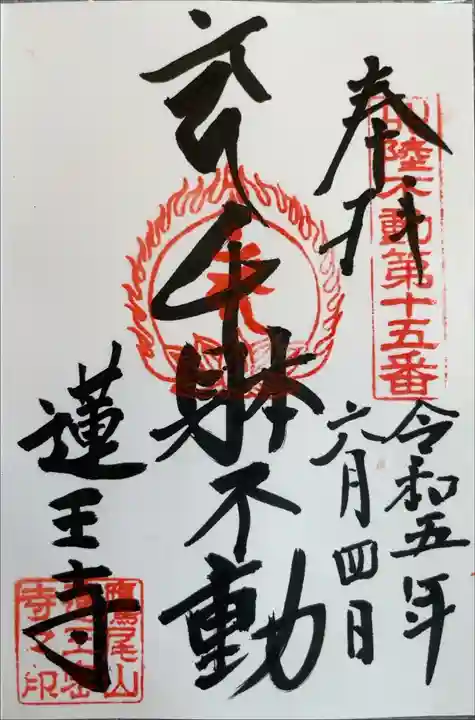 奉拝
北陸不動第十五番
令和五年
六月四日
千躰不動
蓮王寺
鷹尾山
蓮王密
寺之印